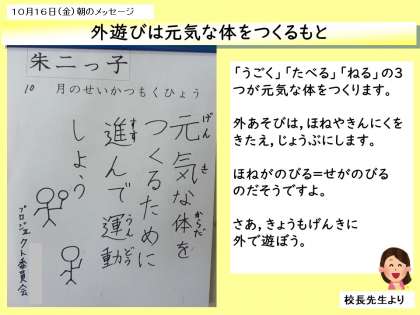 10月16日(金)朝のメッセージ
外遊びは元気な体をつくるもと
朱二っ子
10 月のせいかつもくひょう
元気な体を
げん き からだ
つくるために
進んで運動
すす うんどう
しよう
プロジェクト委員会
「うごく」「たべる」「ねる」の3
つが元気な体をつくります。
外あそびは，ほねやきんにくを
きたえ，じょうぶにします。
ほねがのびる＝せがのびる
のだそうですよ。
さあ，きょうもげんきに
外で遊ぼう。
校長先生より